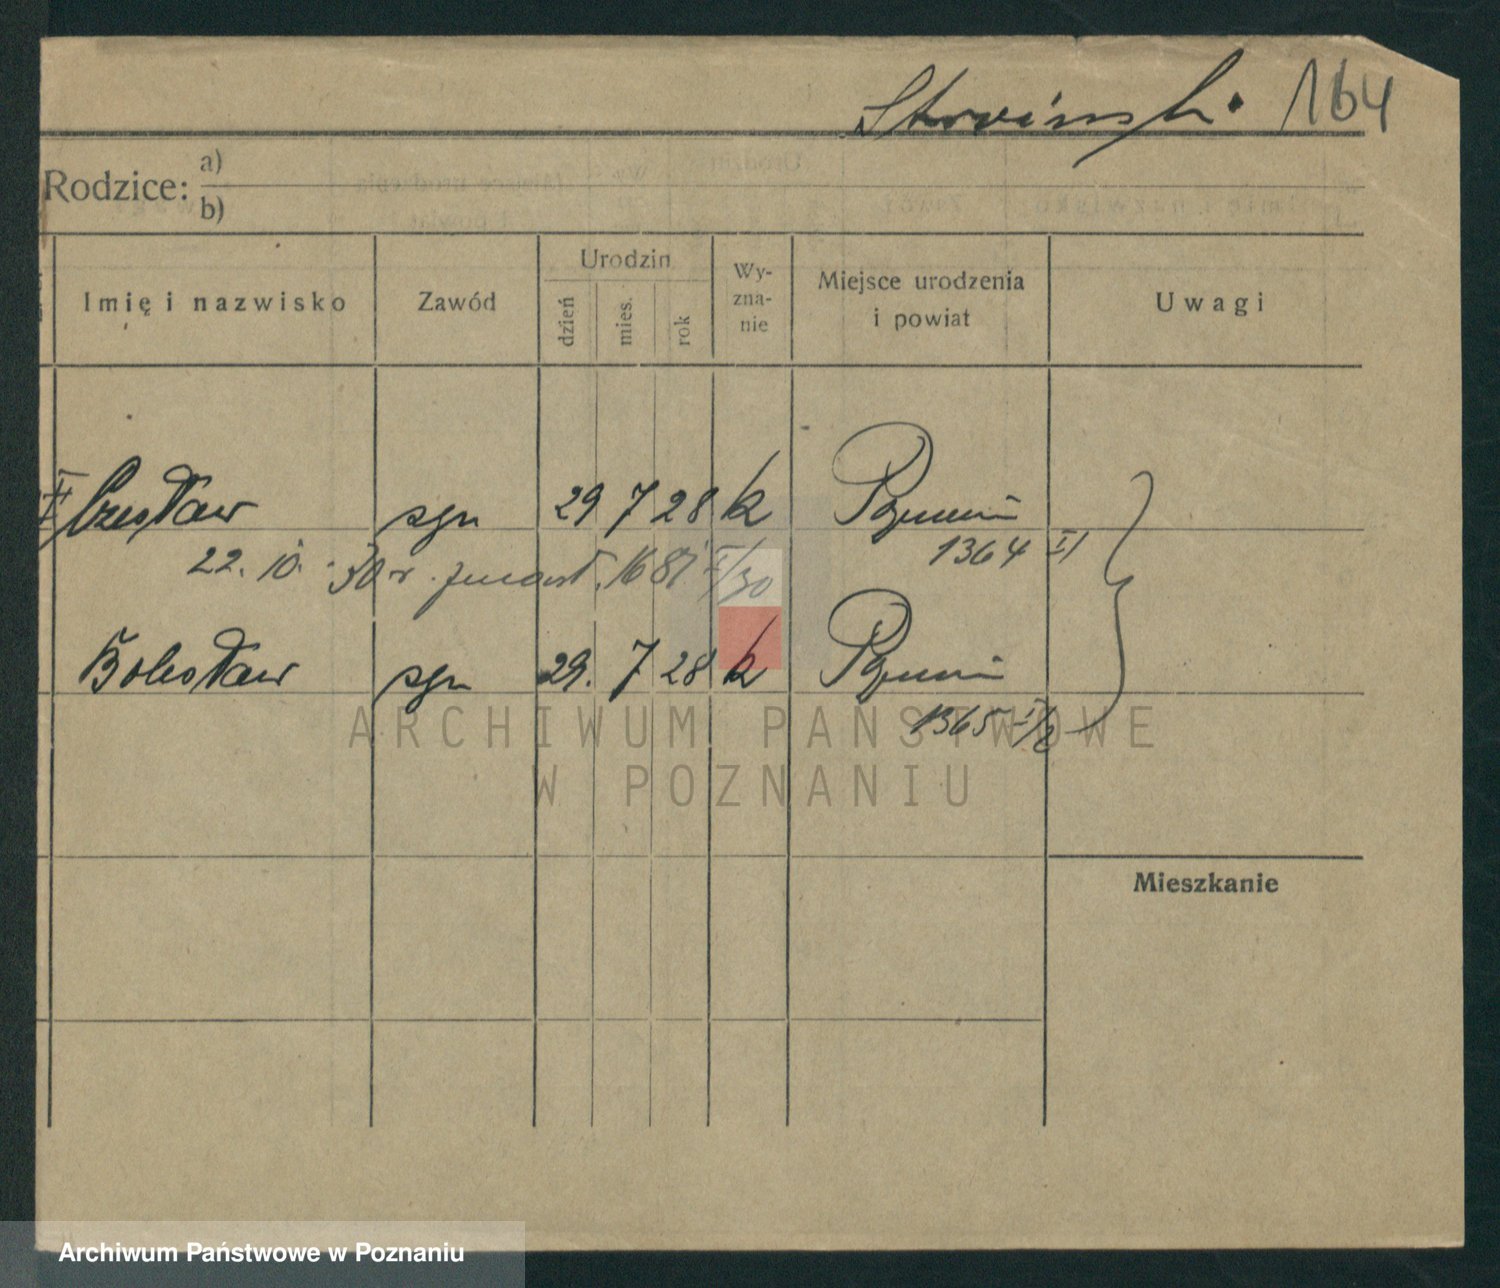 164
Rodzice: a)
b)
Imię i nazwisko Zawód Urodzin dzień mies. rok Wy-zna-nie Miejsce urodzenia i powiat Uwagi
Czesław syn 29 7 28 k Poznań
1364 I/
22. 10. 30 r. zmarł. 1681 I/30
Bolesław syn 29. 7 28 k Poznań
1365 I/2
ARCHIWUM PAŃSTWOWE
W POZNANIU
Mieszkanie
Archiwum Państwowe w Poznaniu